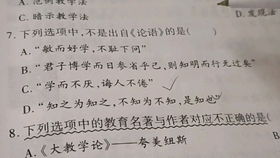 A. 范例教学法
C. 暗示教学法
D. 发现法
7. 下列选项中,不是出自《论语》的是( )
A. “敏而好学,不耻下问”
B. “君子博学而日参省乎己,则知明而行无过矣”
C. “学而不厌,诲人不倦”
D. “知之为知之,不知为不知,是知也”
8. 下列选项中的教育名著与作者对应不正确的是(
A.《大教学论》——夸美纽斯
B